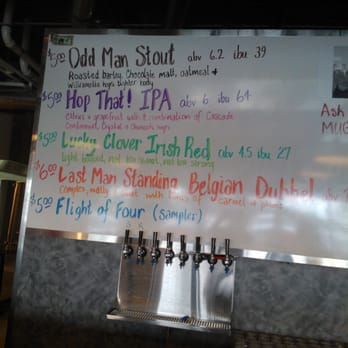 $5.00 Odd Man Stout abv 6.2 ibu 39
Roasted barley, Chocolate malt, oatmeal +
Willamette hops lighter body
$5.00 Hop That! IPA abv 6 ibu 64
Citrus + grapefruit with a combination of Cascade
Centennial, Crystal + Chinook hops
$5.00 Lucky Clover Irish Red abv 4.5 ibu 27
light bodied, not too sweet, not too strong
$6.00 Last Man Standing Belgian Dubbel abv
Complex, malty with hints of caramel + plums
$5.00 Flight of Four (sampler)
Ash
MUG